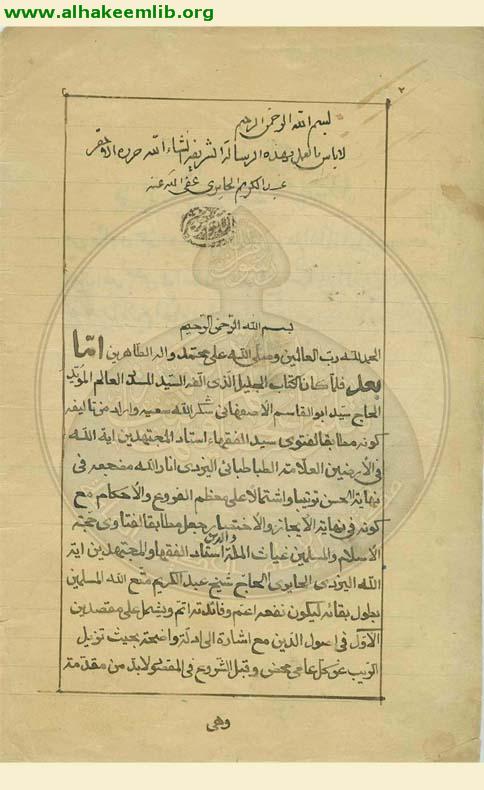 www.alhakeemlib.org
٢
بسم الله الرحمن الرحيم
لا باس بالعمل بهذه الرسالة الشريفة انشاء الله حرره الاحقر
عبد الكريم الحايرى عفى الله عنه
بسم الله الرحمن الرحيم
الحمد لله رب العالمين وصلى الله على محمد واله الطاهرين امّا
بعد فلما كان الكتاب الجليل الذى الفه السيد السند العالم المؤيد
الحاج سيد ابو القاسم الاصفهانى شكر الله سعيه واراد من تاليفه
كونه مطابقا لفتوى سيد الفقهاء استاد المجتهدين اية الله
فى الارضين العلامة الطباطبائى اليزدى انار الله مضجعه فى
نهاية الحسن ترتيبا واشتمالا على معظم الفروع والاحكام مع
كونه فى نهاية الايجاز والاختصار جعل مطابقا لفتاوى حجة
الاسلام والمسلمين غياث الملة والدين استاد الفقهاء والمجتهدين اية
الله اليزدى الحايرى الحاج شيخ عبد الكريم متّع الله المسلمين
بطول بقائه ليكون نفعه اعم وفائدته اتم ويشمل على مقصدين
الاوّل فى اصول الدين مع اشارة الى ادلة واضحة بحيث تزيل
الريب عن كل عامى محض وقبل الشروع فى المقصود لابد من مقدّمة
وهى